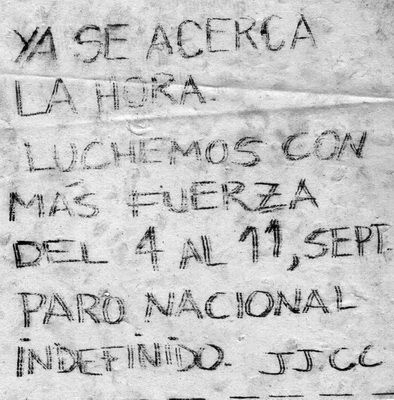 YA SE ACERCA
LA HORA.
LUCHEMOS CON
MÁS FUERZA
DEL 4 AL 11, SEPT.
PARO NACIONAL
INDEFINIDO. JJ.CC